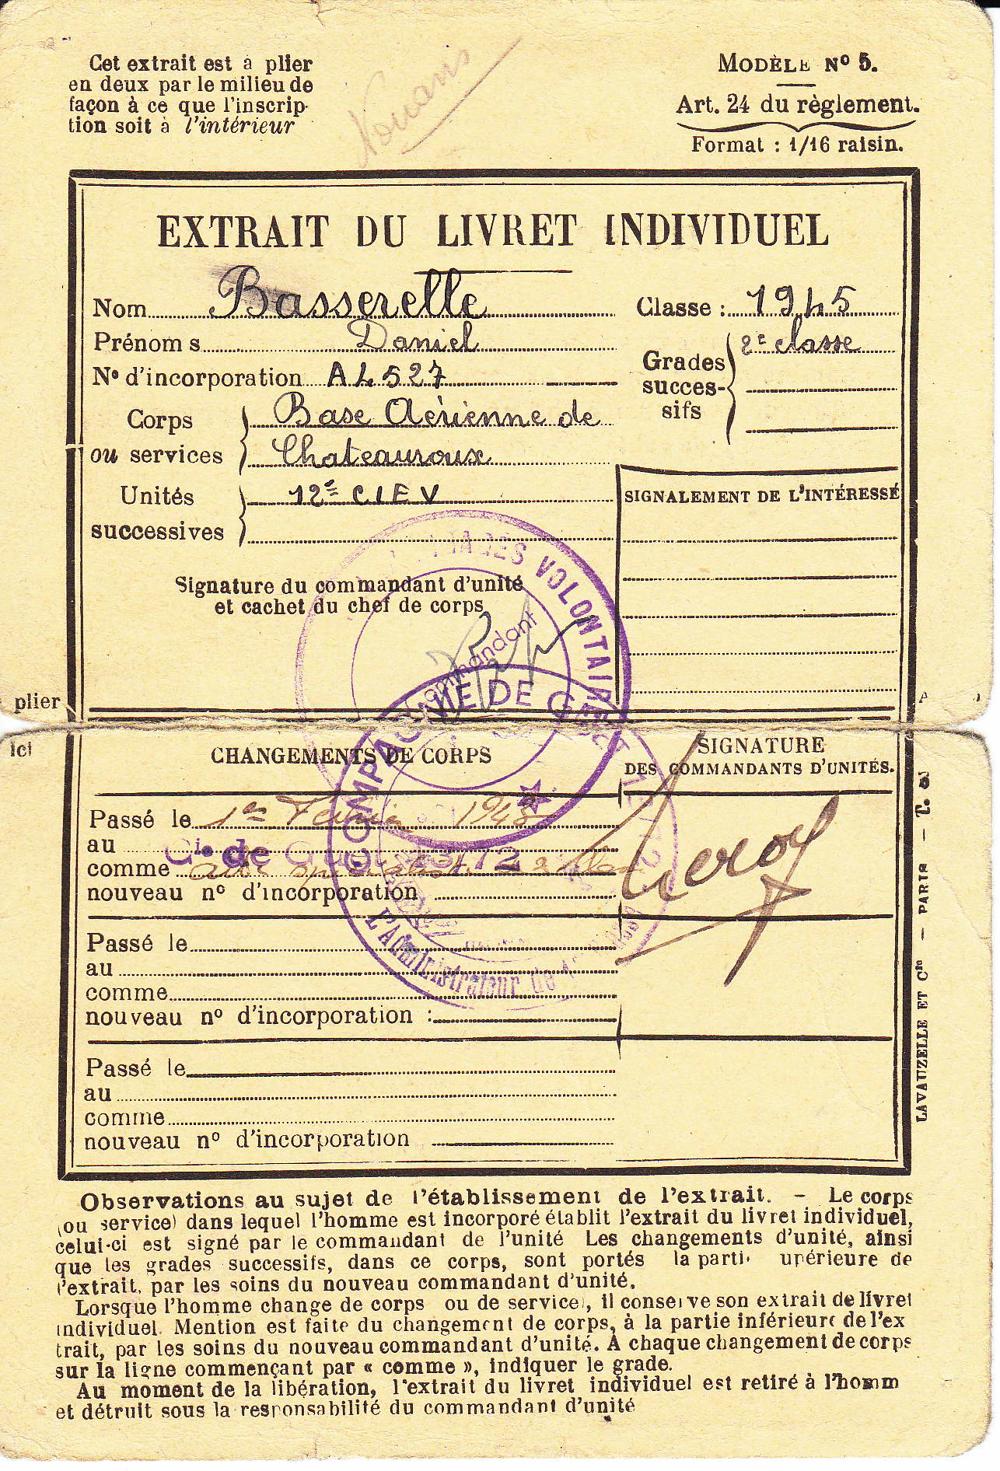 Cet extrait est à plier
en deux par le milieu de
façon à ce que l'inscrip-
tion soit à l'intérieur
Nouans
MODÈLE N° 5.
Art. 24 du règlement.
Format : 1/16 raisin.
EXTRAIT DU LIVRET INDIVIDUEL
Nom Basserelle
Classe : 1945
Prénoms Daniel
Grades successifs 2e classe
N° d'incorporation AL527
Corps ou services Base Aérienne de
Chateauroux
Unités successives 12e CIEV
SIGNALEMENT DE L'INTÉRESSÉ
Signature du commandant d'unité
et cachet du chef de corps
VOLONTAIRES
Commandant
plier
ici
COMPAGNIE DE
L'Administrateur de
CHANGEMENTS DE CORPS
SIGNATURE
DES COMMANDANTS D'UNITÉS.
Passé le 1er Février 1948
au Cie de
comme
nouveau n° d'incorporation
Leroy
Passé le
au
comme
nouveau n° d'incorporation :
Passé le
au
comme
nouveau n° d'incorporation
LAVAUZELLE ET Cie — PARIS —
Observations au sujet de l'établissement de l'extrait. — Le corps
(ou service) dans lequel l'homme est incorporé établit l'extrait du livret individuel,
celui-ci est signé par le commandant de l'unité Les changements d'unité, ainsi
que les grades successifs, dans ce corps, sont portés la parti upérieure de
l'extrait, par les soins du nouveau commandant d'unité.
Lorsque l'homme change de corps ou de service, il conserve son extrait de livret
individuel. Mention est faite du changement de corps, à la partie inférieure de l'ex
trait, par les soins du nouveau commandant d'unité. A chaque changement de corps
sur la ligne commençant par « comme », indiquer le grade.
Au moment de la libération, l'extrait du livret individuel est retiré à l'homm
et détruit sous la responsabilité du commandant d'unité